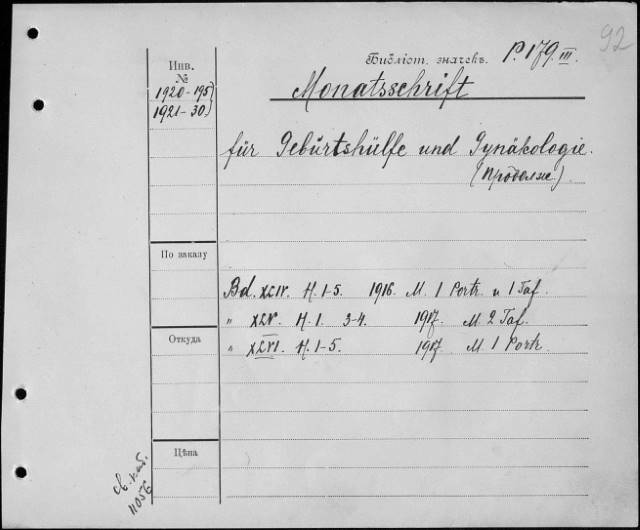 92
Инв.
№
Библіот. значекъ. P. 179 III.
1920-195
1921-30
Monatsschrift
für Geburtshülfe und Gynäkologie.
(Продолж.)
По заказу
Bd. XLIV. H. 1-5. 1916 M. 1 Portr. u 1 Taf.
" XLV. H. 1. 3-4. 1917. M. 2 Taf.
Откуда
" XLVI. H. 1-5. 1917 M. 1 Portr.
Цѣна
11056